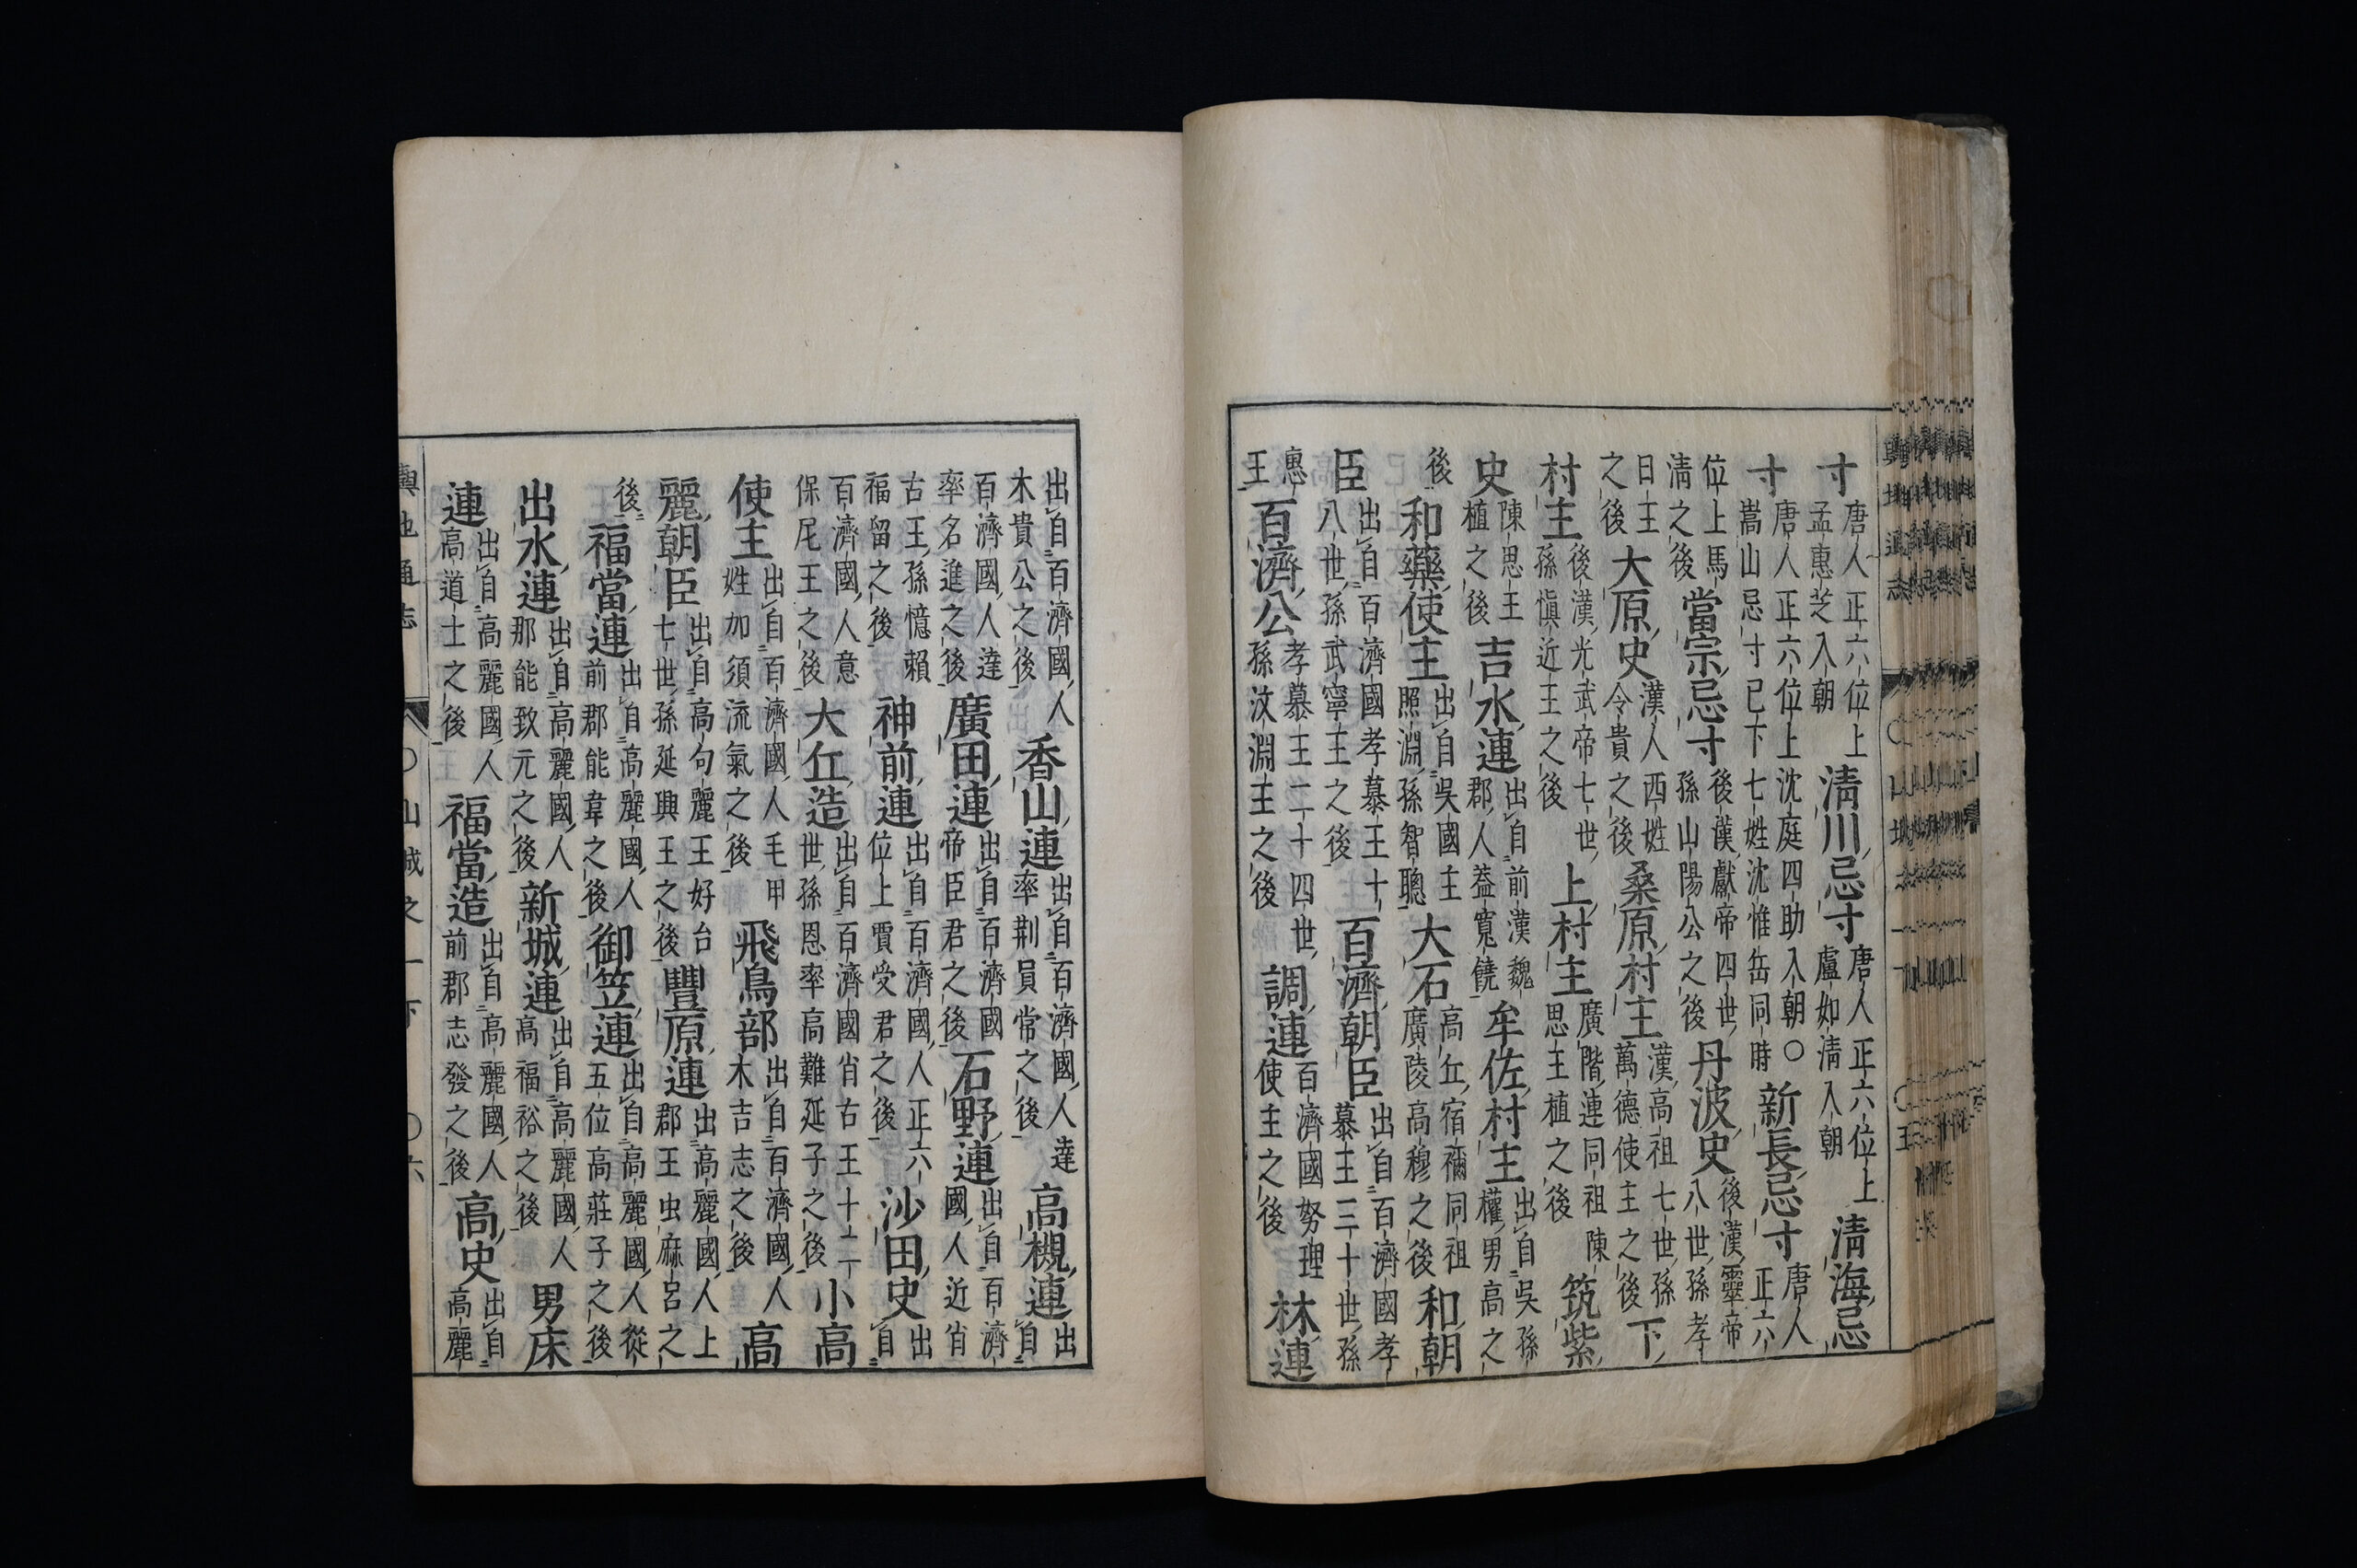 寸唐人正六位上孟惠芝入朝清川忌寸唐人正六位上盧如清入朝清海忌
寸唐人正六位上沈庭四助入朝〇嵩山忌寸已下七姓沈惟岳同時新長忌寸唐人正六
位上馬清之後當宗忌寸後漢獻帝四世孫山陽公之後丹波史後漢靈帝八世孫孝
日王之後大原史漢人西姓令貴之後桑原村主漢高祖七世孫萬德使主之後下
村主後漢光武帝七世孫愼近王之後上村主廣階連同祖陳思王植之後筑紫
史陳思王植之後吉水連出自前漢魏郡人蓋寬饒牟佐村主出自吳孫權男高之
後和藥使主出自吳國主照淵孫智聰大石高丘宿禰同祖廣陵高穆之後和朝
臣出自百濟國孝慕王十八世孫武寧王之後百濟朝臣出自百濟國孝慕王三十世孫
惠王百濟公孝慕王二十四世孫汶淵王之後調連百濟國努理使主之後林連
出自百濟國人木貴公之後香山連出自百濟國人達率荆員常之後高槻連出自
百濟國人達率名進之後廣田連出自百濟國帝臣君之後石野連出自百濟國人近肖
古王孫憶賴福留之後神前連出自百濟國人正六位上賈受君之後沙田史出自
百濟國人意保尼王之後大丘造出自百濟國肖古王十二世孫恩率高難延子之後小高
使主出自百濟國人毛甲姓加須流氣之後飛鳥部出自百濟國人木吉志之後高
麗朝臣出自高句麗王好台七世孫延興王之後豐原連出高麗國人上郡王虫麻呂之
後福當連出自高麗國人前郡能韋之後御笠連出自高麗國人從五位高莊子之後
出水連出自高麗國人那能致元之後新城連出自高麗國人高福裕之後男床
連出自高麗國人高道士之後福當造出自高麗國人前郡志發之後高史出自高麗
輿地通志 〇山城之一下 〇六